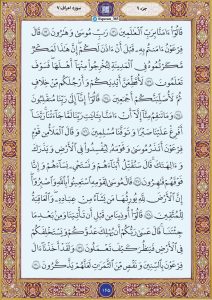 جزء ۹
سوره اعراف ۷
قَالُوٓا۟ ءَامَنَّا بِرَبِّ ٱلْعَٰلَمِينَ ١٢١ رَبِّ مُوسَىٰ وَهَٰرُونَ ١٢٢ قَالَ
فِرْعَوْنُ ءَامَنتُم بِهِۦ قَبْلَ أَنْ ءَاذَنَ لَكُمْ إِنَّ هَٰذَا لَمَكْرٌ
مَّكَرْتُمُوهُ فِى ٱلْمَدِينَةِ لِتُخْرِجُوا۟ مِنْهَآ أَهْلَهَا فَسَوْفَ
تَعْلَمُونَ ١٢٣ لَأُقَطِّعَنَّ أَيْدِيَكُمْ وَأَرْجُلَكُم مِّنْ خِلَٰفٍ
ثُمَّ لَأُصَلِّبَنَّكُمْ أَجْمَعِينَ ١٢٤ قَالُوٓا۟ إِنَّآ إِلَىٰ رَبِّنَا مُنقَلِبُونَ ١٢٥
وَمَا تَنقِمُ مِنَّآ إِلَّآ أَنْ ءَامَنَّا بِـَٔايَٰتِ رَبِّنَا لَمَّا جَآءَتْنَا رَبَّنَآ
أَفْرِغْ عَلَيْنَا صَبْرًا وَتَوَفَّنَا مُسْلِمِينَ ١٢٦ وَقَالَ ٱلْمَلَأُ مِن قَوْمِ
فِرْعَوْنَ أَتَذَرُ مُوسَىٰ وَقَوْمَهُۥ لِيُفْسِدُوا۟ فِى ٱلْأَرْضِ وَيَذَرَكَ
وَءَالِهَتَكَ قَالَ سَنُقَتِّلُ أَبْنَآءَهُمْ وَنَسْتَحْىِۦ نِسَآءَهُمْ وَإِنَّا
فَوْقَهُمْ قَٰهِرُونَ ١٢٧ قَالَ مُوسَىٰ لِقَوْمِهِ ٱسْتَعِينُوا۟ بِٱللَّهِ وَٱصْبِرُوٓا۟
إِنَّ ٱلْأَرْضَ لِلَّهِ يُورِثُهَا مَن يَشَآءُ مِنْ عِبَادِهِۦ وَٱلْعَٰقِبَةُ
لِلْمُتَّقِينَ ١٢٨ قَالُوٓا۟ أُوذِينَا مِن قَبْلِ أَن تَأْتِيَنَا وَمِنۢ بَعْدِ مَا
جِئْتَنَا قَالَ عَسَىٰ رَبُّكُمْ أَن يُهْلِكَ عَدُوَّكُمْ وَيَسْتَخْلِفَكُمْ
فِى ٱلْأَرْضِ فَيَنظُرَ كَيْفَ تَعْمَلُونَ ١٢٩ وَلَقَدْ أَخَذْنَآ ءَالَ
فِرْعَوْنَ بِٱلسِّنِينَ وَنَقْصٍ مِّنَ ٱلثَّمَرَٰتِ لَعَلَّهُمْ يَذَّكَّرُونَ ١٣٠
۱۶۵